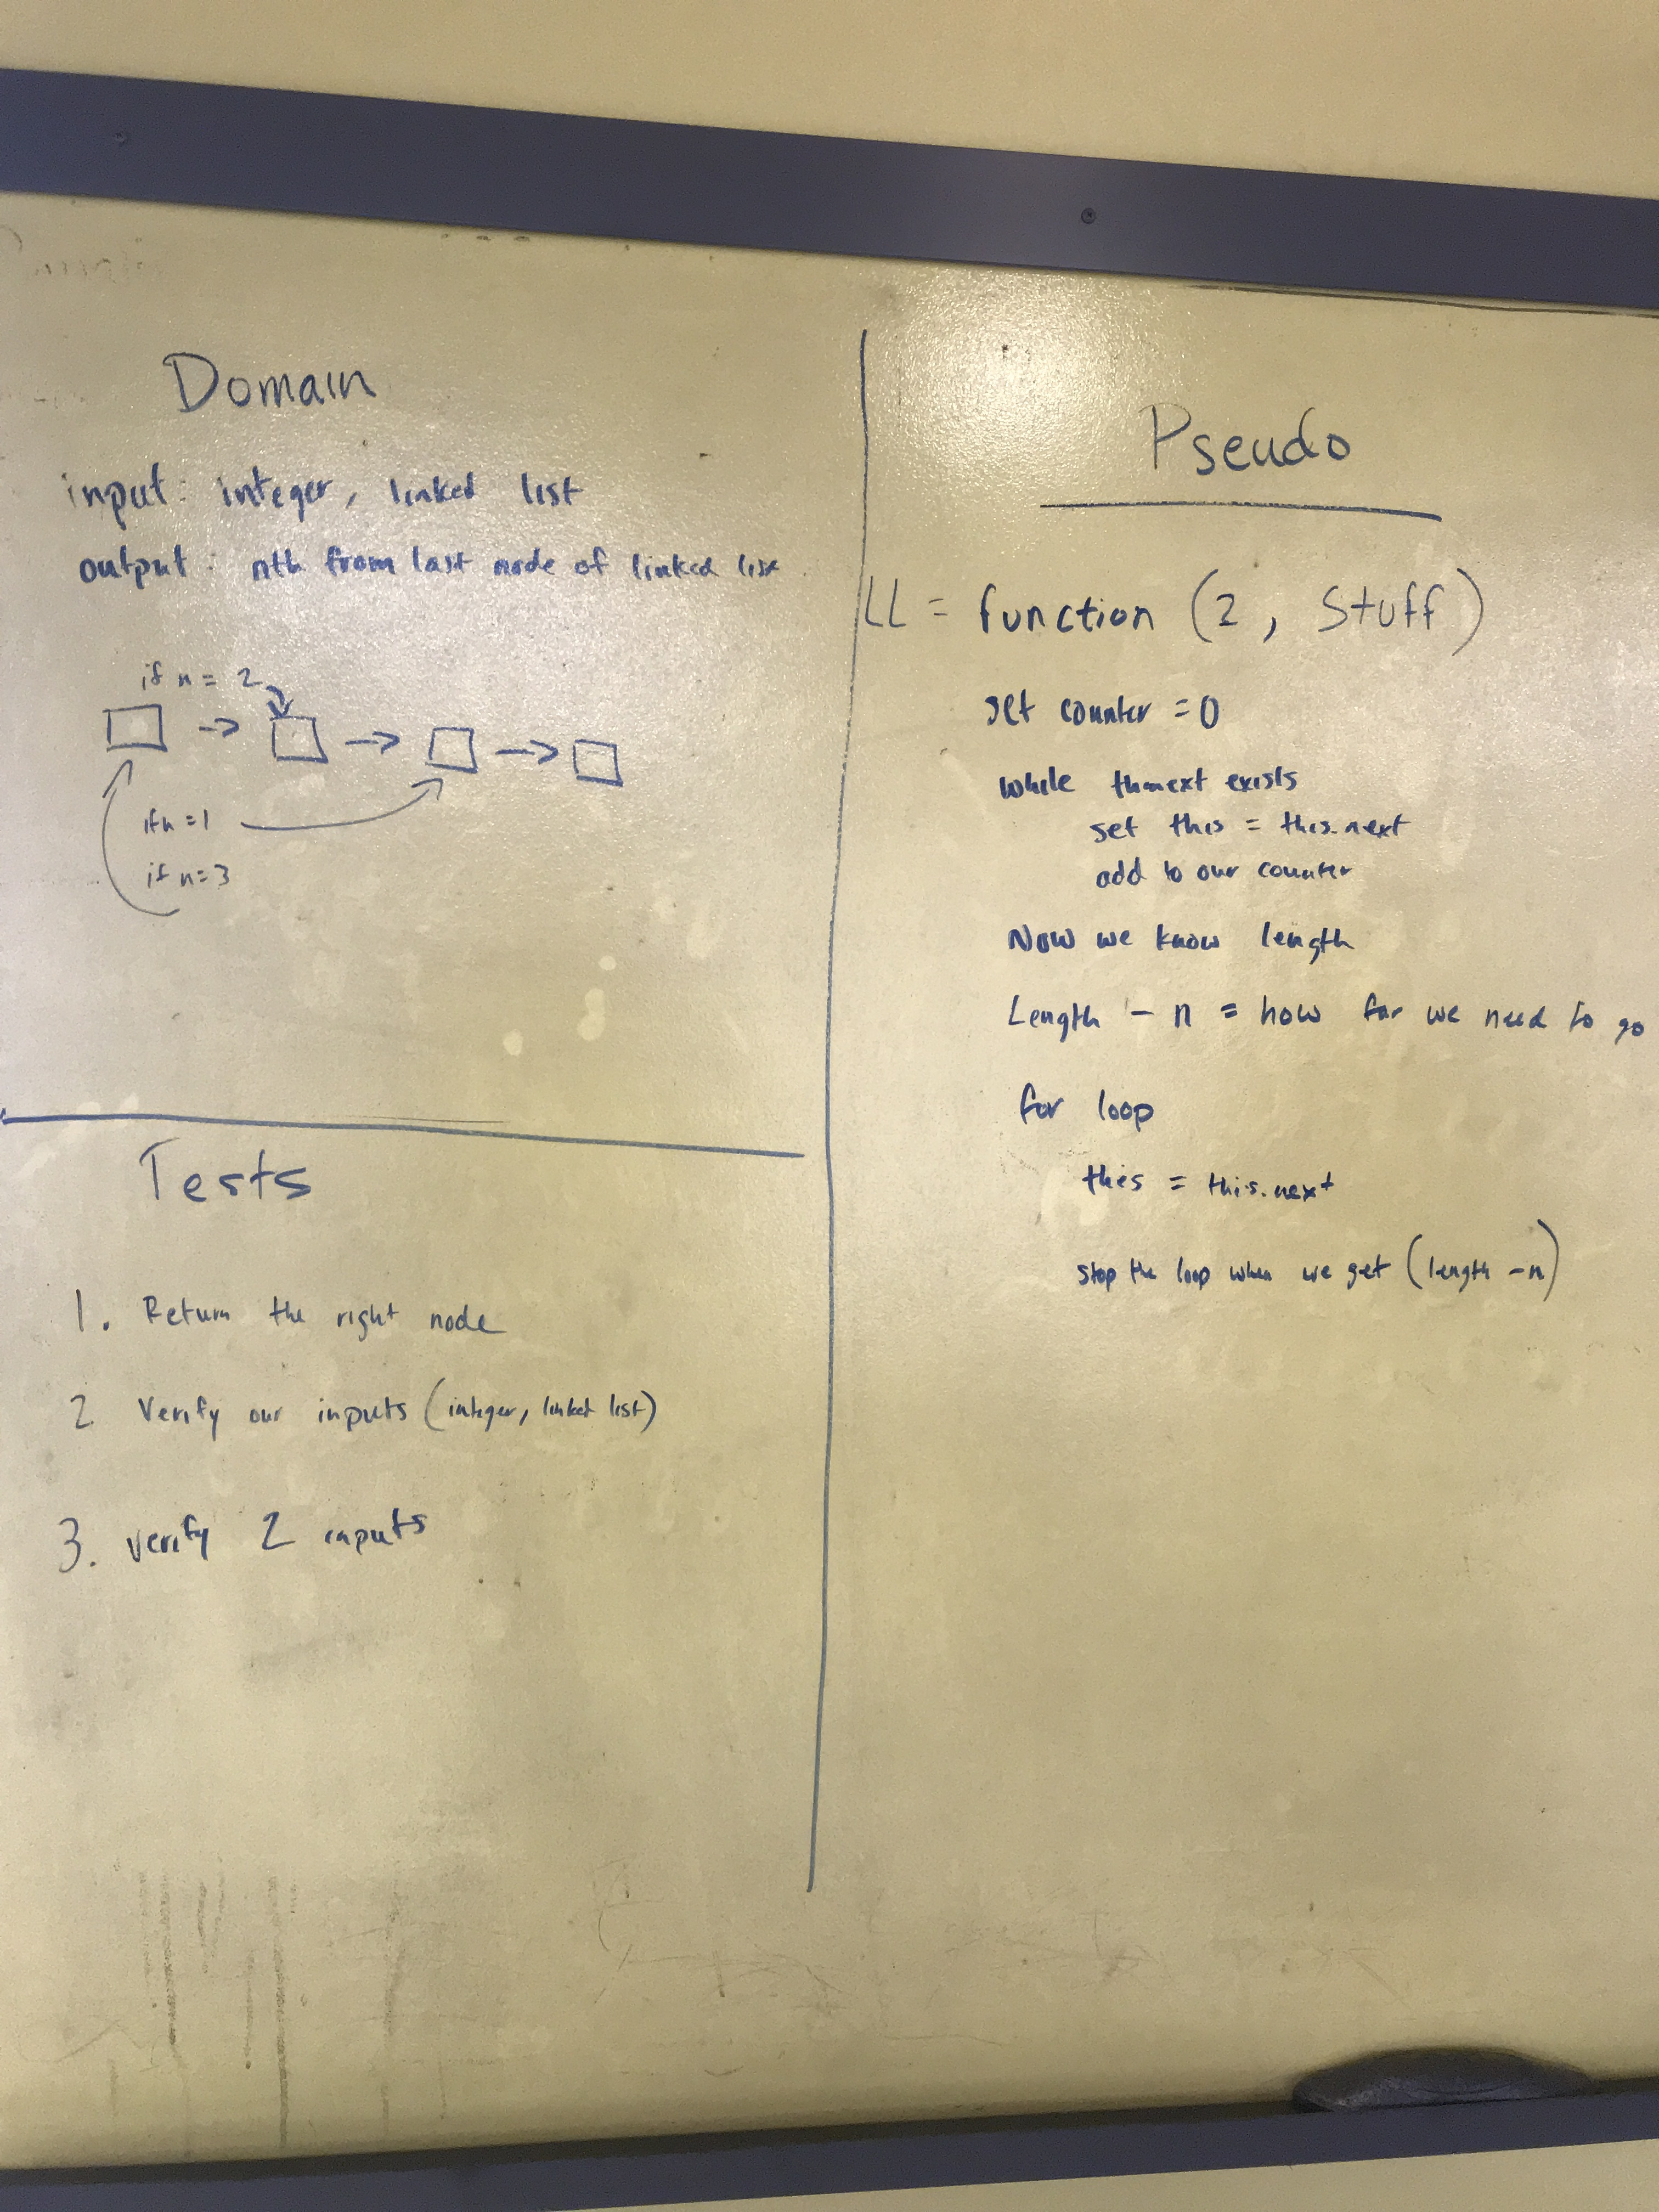 Domain
input: integer, linked list
output: nth from last node of linked list
if n = 2
if n = 1
if n = 3
Tests
1. Return the right node
2 Verify our inputs (integer, linked list)
3. verify 2 inputs
Pseudo
LL = function (2, Stuff)
set counter = 0
while exists
set this = this.next
add to our counter
Now we know length
Length - n = how far we need to go
for loop
this = this.next
stop the loop when we get (length - n)